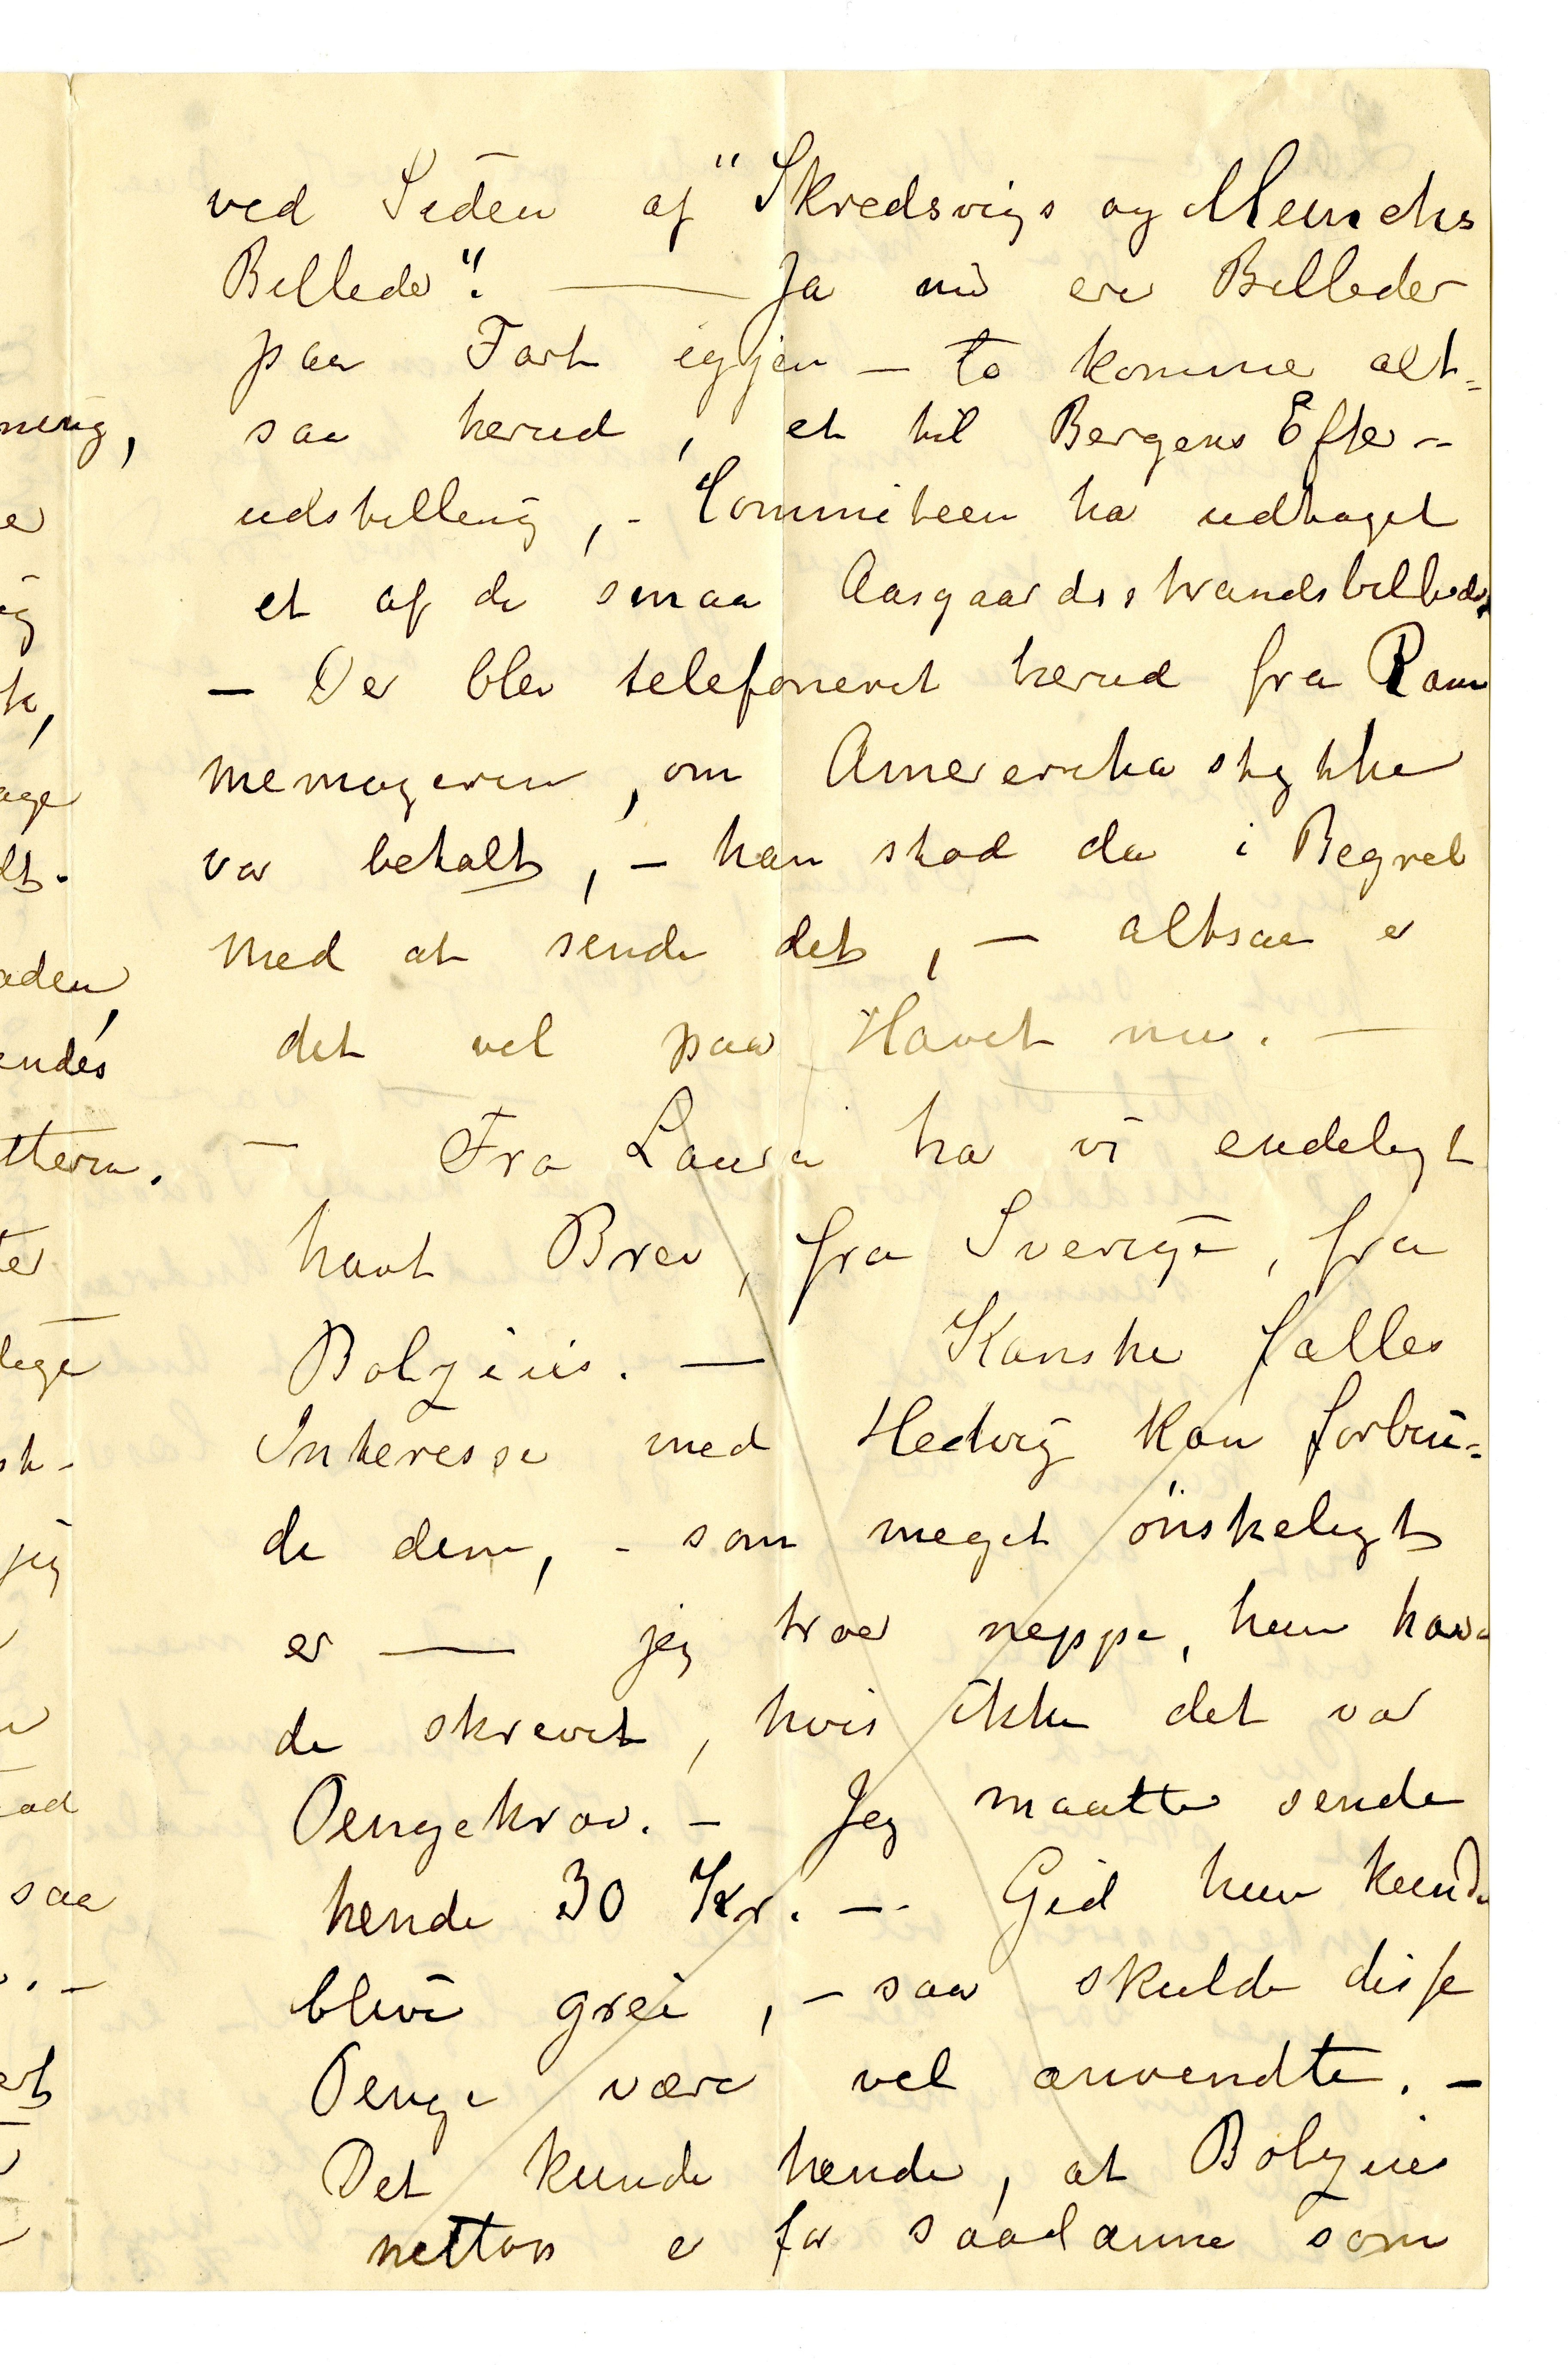 ved Siden af "Skredsvigs og Munchs
Billede". — Ja nu ere Billeder
paa Fart igjen – to komme alt=
saa herud, et til Bergens Efter--
udstilling, - Commiteen ha udtaget
et af de smaa Aasgaardsstrandsbilleder
– Der blev telefoneret herud fra Ram
memageren, om Amererika stykke
var betalt, – han stod da i Begreb
med at sende det, – altsaa er
det vel paa Havet nu. –
– Fra Laura ha vi endeligt
havt Brev, fra Sverige, fra
Bolzius. — Kanske fælles
Interesse med Hedvig kan forbin=
de dem, - som meget önskeligt
er — jeg troer neppe, hun hav
de skrevet, hvis ikke det var
Pengekrav. – Jeg maatte sende
hende 30 Kr. –- Gid hun kunde
blive grei, – saa skulde disse
Penge være vel anvendte. –
Det kunde hænde, at Bolzius
nettop er for saadanne som
ning,
ig
age
aden,
endes
tteren.
lige
jeg
saa